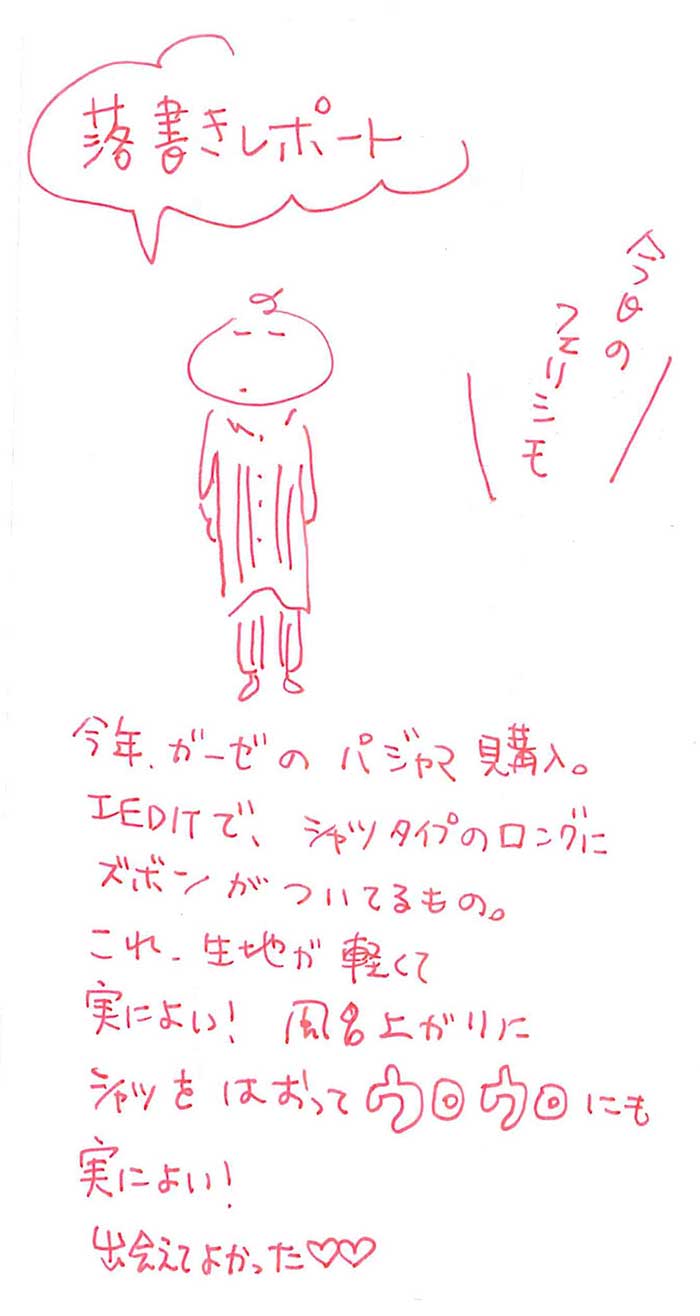 落書きレポート
今日の
フェリシモ
今年、ガーゼのパジャマ購入。
IEDITで、シャツタイプのロングに
ズボンがついてるもの。
これ、生地が軽くて
実によい! 風呂上がりに
シャツをはおってウロウロにも
実によい!
出会えてよかった♡♡